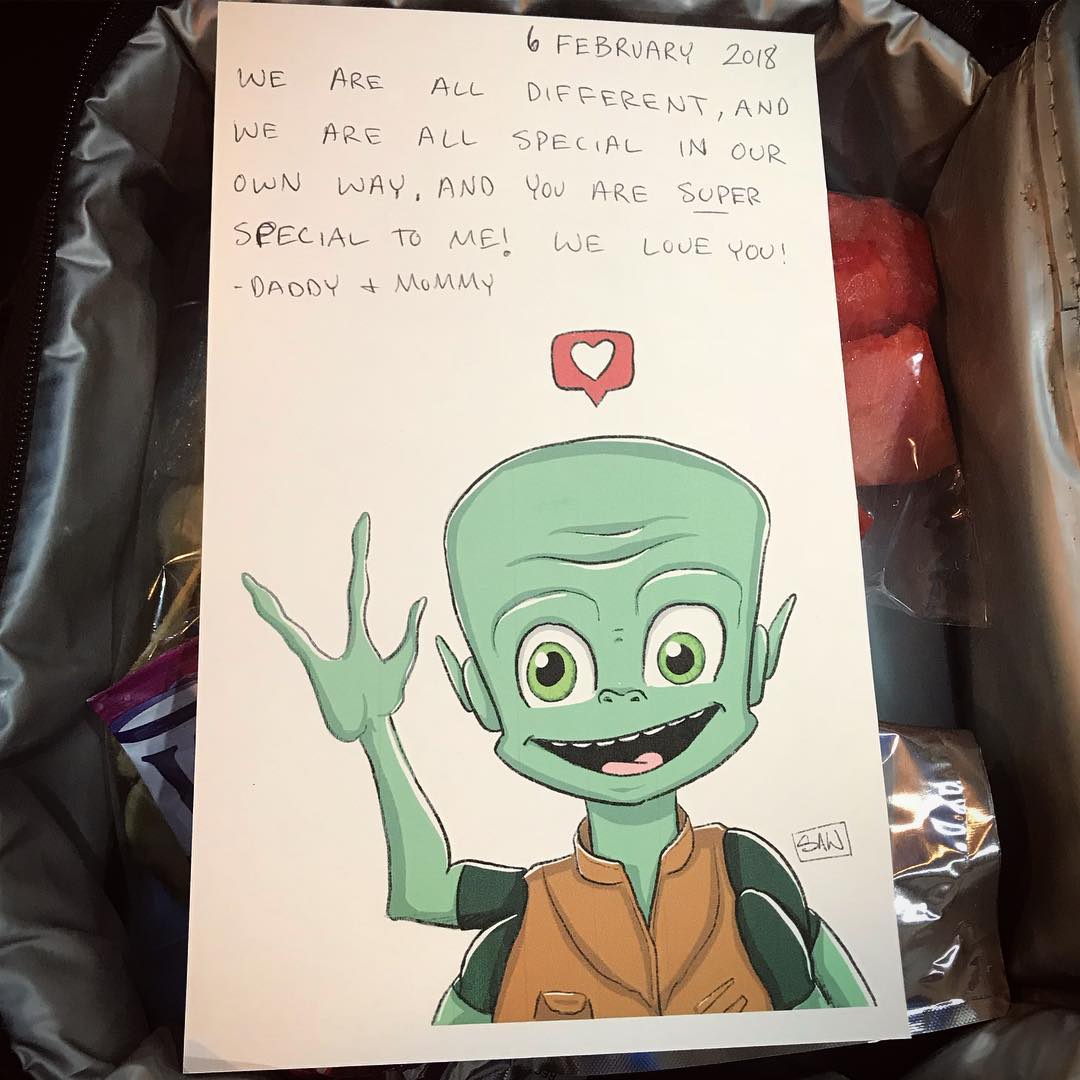 6 FEBRUARY 2018
WE ARE ALL DIFFERENT, AND
WE ARE ALL SPECIAL IN OUR
OWN WAY, AND YOU ARE SUPER
SPECIAL TO ME! WE LOVE YOU!
-DADDY + MOMMY
SAW